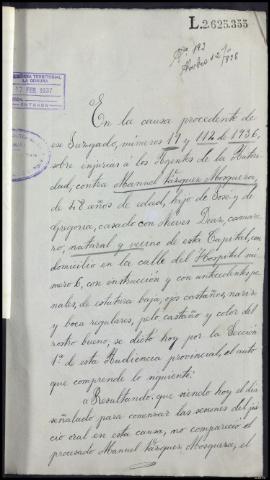 L.2.625.355
Nº 192
1936
AUDIENCIA TERRITORIAL
LA CORUÑA
12 FEB 1937
ENTRADA
En la causa procedente de
ese Juzgado, números 17 y 112 de 1936,
sobre injurias á los Agentes de la Autori-
dad, contra Manuel Vázquez Mosquera,
de 48 años de edad, hijo de José y de
Gregoria, casado con Nieves Deaz, camare-
ro, natural y vecino de esta Capital, con
domicilio en la calle del Hospital nú-
mero 6, con instrucción y con antecedentes pe-
nales, de estatura baja, ojos castaños, nariz
y boca regulares, pelo castaño y color del
rostro bueno, se dictó hoy por la Sección
1ª de esta Audiencia provincial, el auto
que comprende lo siguiente:
"Resultando, que siendo hoy el día
señalado para comenzar las sesiones del jui-
cio oral en esta causa, no compareció el
procesado Manuel Vázquez Mosquera, el